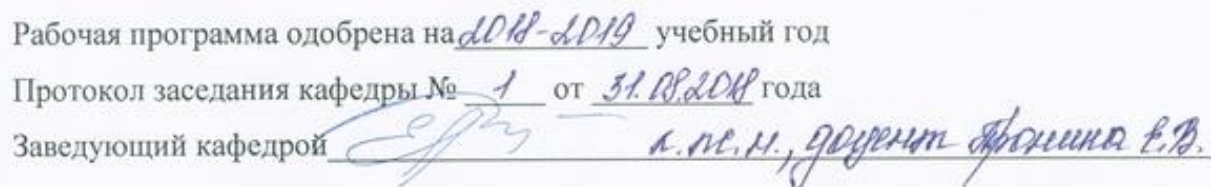 Рабочая программа одобрена на 2018-2019 учебный год
Протокол заседания кафедры № 1 от 31.08.2018 года
Заведующий кафедрой к.т.н., доцент Пронина Е.В.